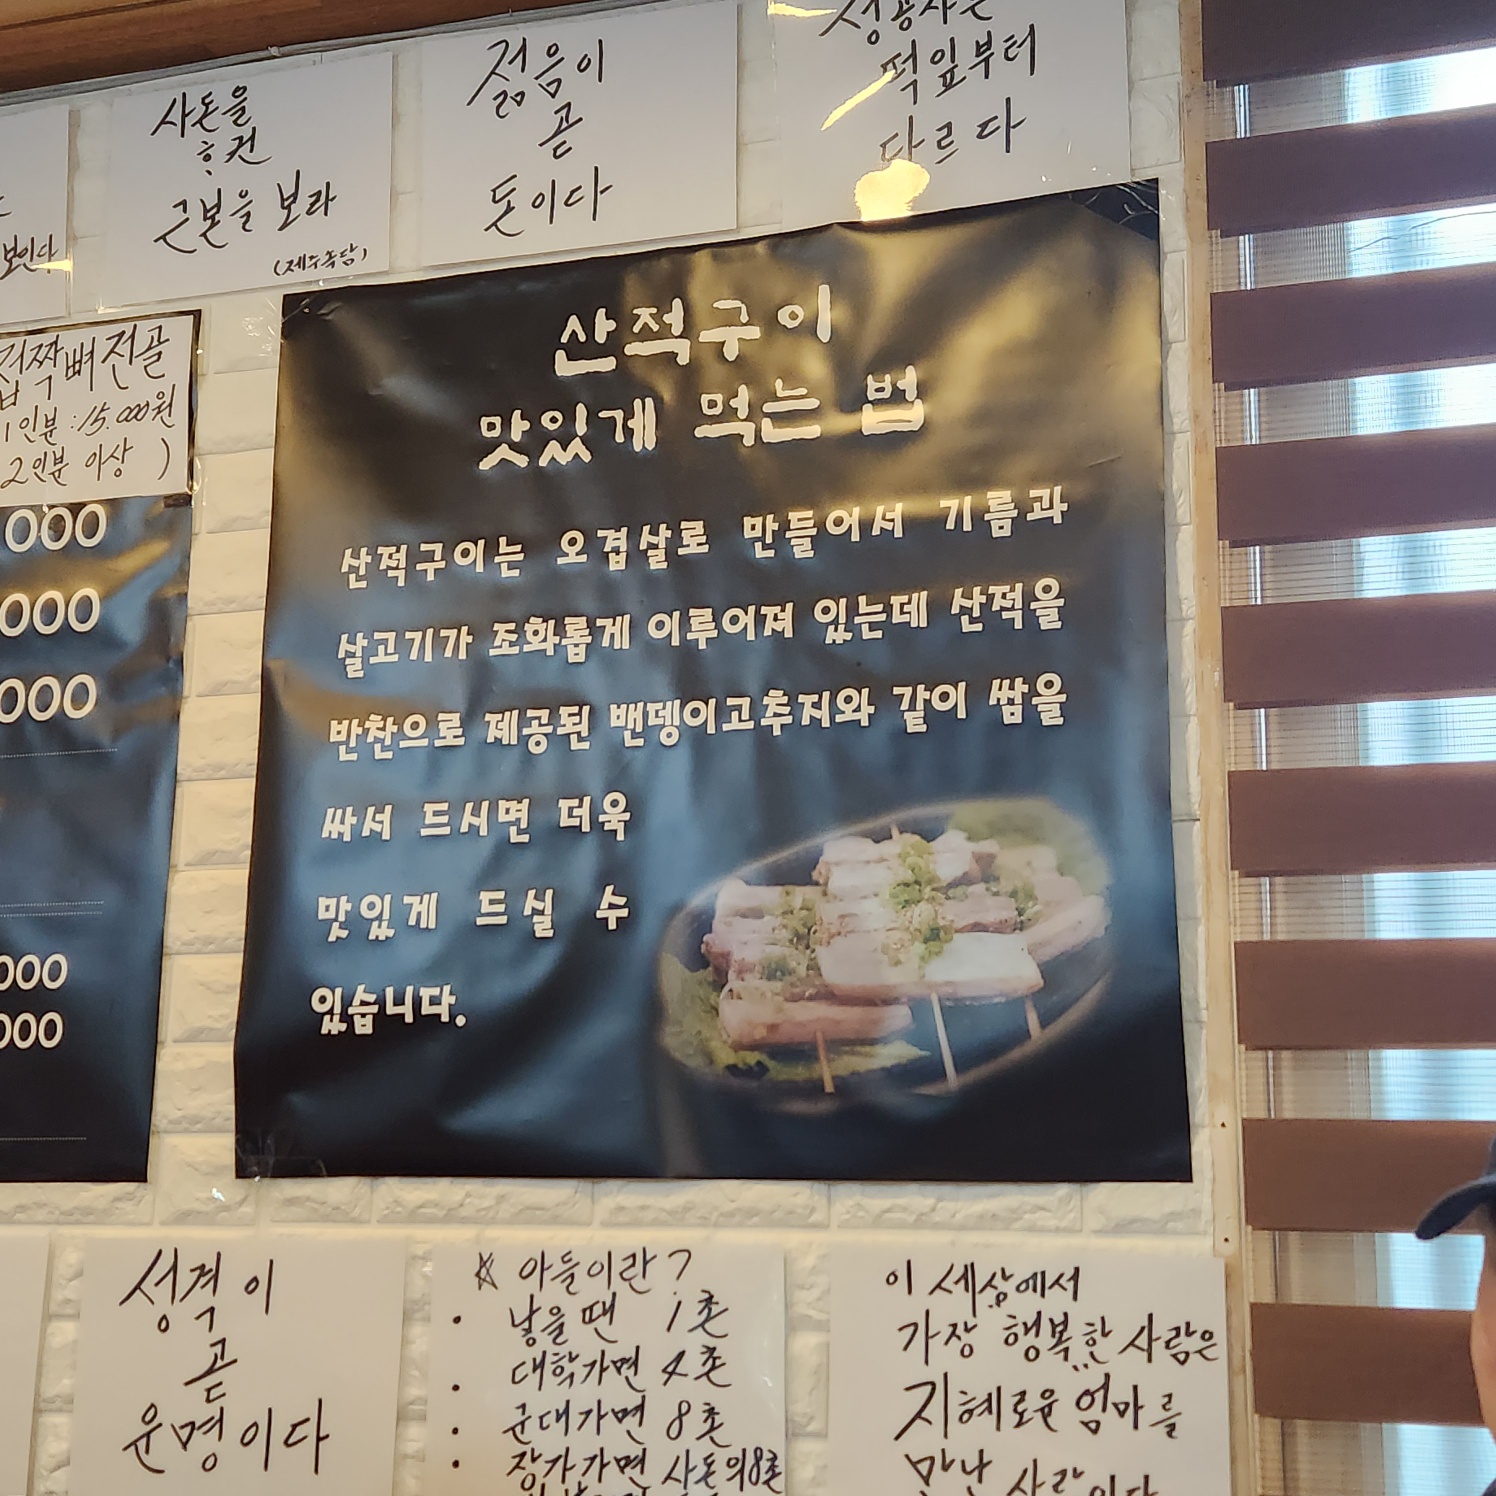 성공자는
떡잎부터
다르다
젊음이
곧
돈이다
사돈을
권
근본을 보라
(제주속담)
보인다
접짝뼈전골
1인분:15.000원
2인분 이상 )
000
000
000
000
000
산적구이
맛있게 먹는 법
산적구이는 오겹살로 만들어서 기름과
살고기가 조화롭게 이루어져 있는데 산적을
반찬으로 제공된 밴뎅이고추지와 같이 쌈을
싸서 드시면 더욱
맛있게 드실 수
있습니다.
성격이
곧
운명이다
☆ 아들이란?
· 낳을땐 1촌
· 대학가면 4촌
· 군대가면 8촌
· 장가가면 사돈의8촌
이 세상에서
가장 행복한 사람은
지혜로운 엄마를
만난 사람이다